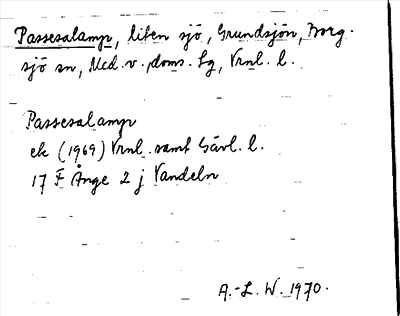 Passesalamp, liten sjö, Grundsjön, Borg-
sjö sn, Med. v. doms. lg, Vrnl. l.
Passesalamp
ek (1969) Vrnl. samt Gävl. l.
17 F Ånge 2 j Vandeln
A.-L. W. 1970.